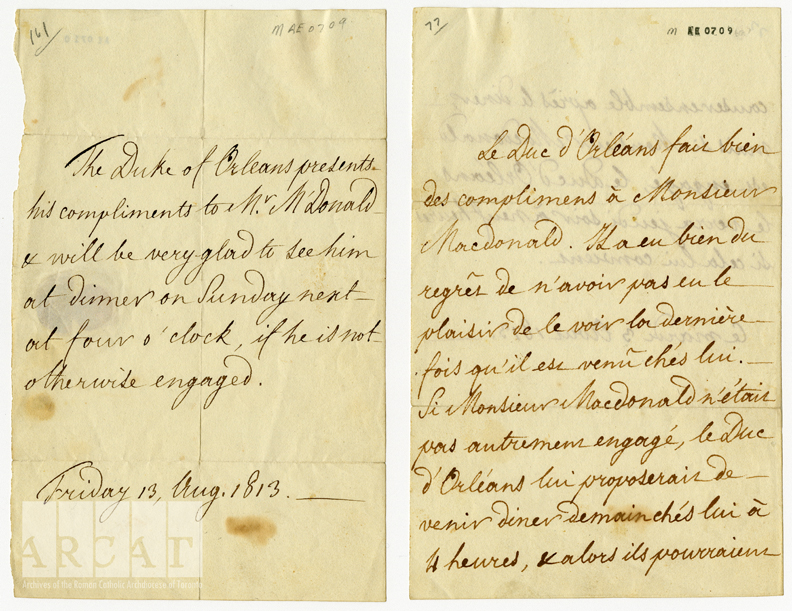 161
M AE 07 09
The Duke of Orleans presents
his compliments to Mr. McDonald
& will be very glad to see him
at dinner on Sunday next
at four o'clock, if he is not
otherwise engaged.
Friday 13, Aug. 1813.
ARCAT
Archives of the Roman Catholic Archdiocese of Toronto
77
M AE 0709
Le Duc d'Orléans fait bien
des complimens à Monsieur
Macdonald. Il a eu bien du
regrêt de n'avoir pas eu le
plaisir de le voir la dernière
fois qu'il est venû chés lui.
Si Monsieur Macdonald n'était
pas autrement engagé, le Duc
d'Orléans lui proposerait de
venir diner demain chés lui à
4 heures, & alors ils pourraient